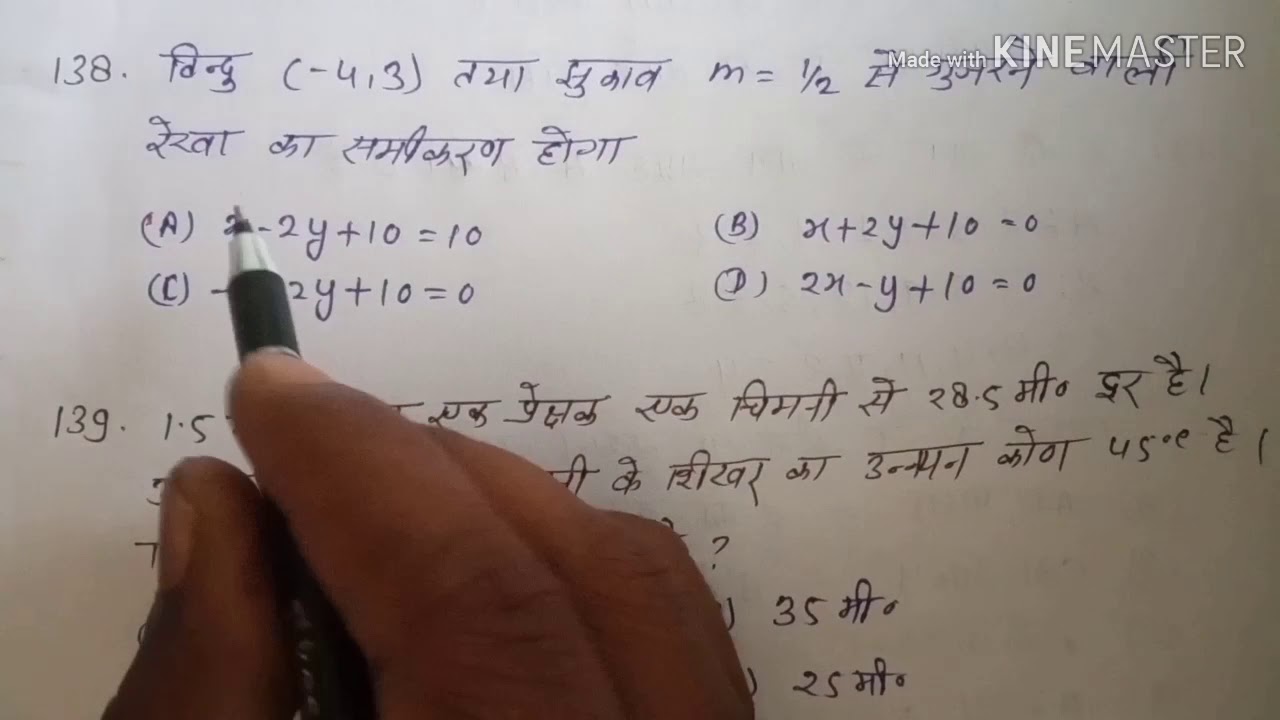 Made with KINEMASTER
138. बिन्दु (-4,3) तथा झुकाव m = 1/2 से गुजरने वाली
रेखा का समीकरण होगा
(A) x-2y+10 = 10
(B) x+2y+10 = 0
(C) - 2y+10 = 0
(D) 2x-y+10 = 0
139. 1.5 एक प्रेक्षक एक चिमनी से 28.5 मी० दूर है।
के शीखर का उन्नयन कोण 45°
है।
?
35 मी०
25 मी०